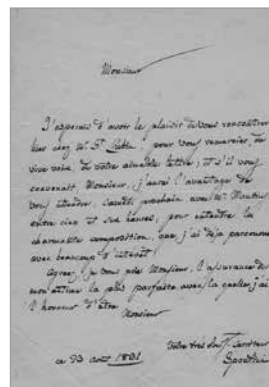 Monsieur
J'esperais d'avoir le plaisir de vous rencontrer
hier chez Mr. pour vous remercier, de
vive voix, de votre aimable lettre; et s'il vous
convenait, Monsieur, j'aurai l'avantage de
vous attendre, prochain avec Mr.
entre cinq et six heures, pour entendre la
charmante composition, que j'ai déja parcourue
avec beaucoup d'interêt.
Agréez, je vous prie Monsieur, l'assurance de
mon estime la plus parfaite avec la quelle j'ai
l'honneur d'être
Monsieur
Votre très serviteur
ce 23 1831. Spontini